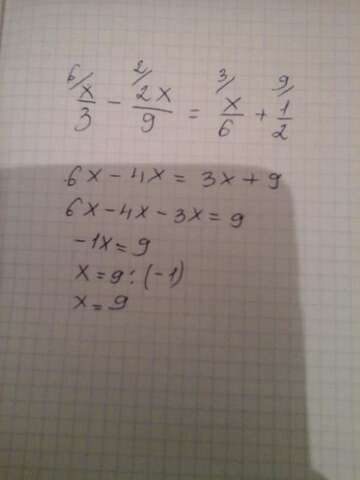 6/ x/3 - 2/ 2x/9 = 3/ x/6 + 9/ 1/2
6x - 4x = 3x + 9
6x - 4x - 3x = 9
-1x = 9
x = 9 : (-1)
x = 9